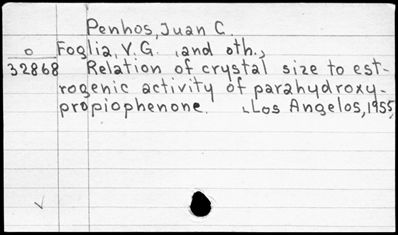 Penhos, Juan C.
o Foglia, V.G. , and oth.,
32868 Relation of crystal size to est-
rogenic activity of parahydroxy-
propiophenone. Los Angelos, 1955